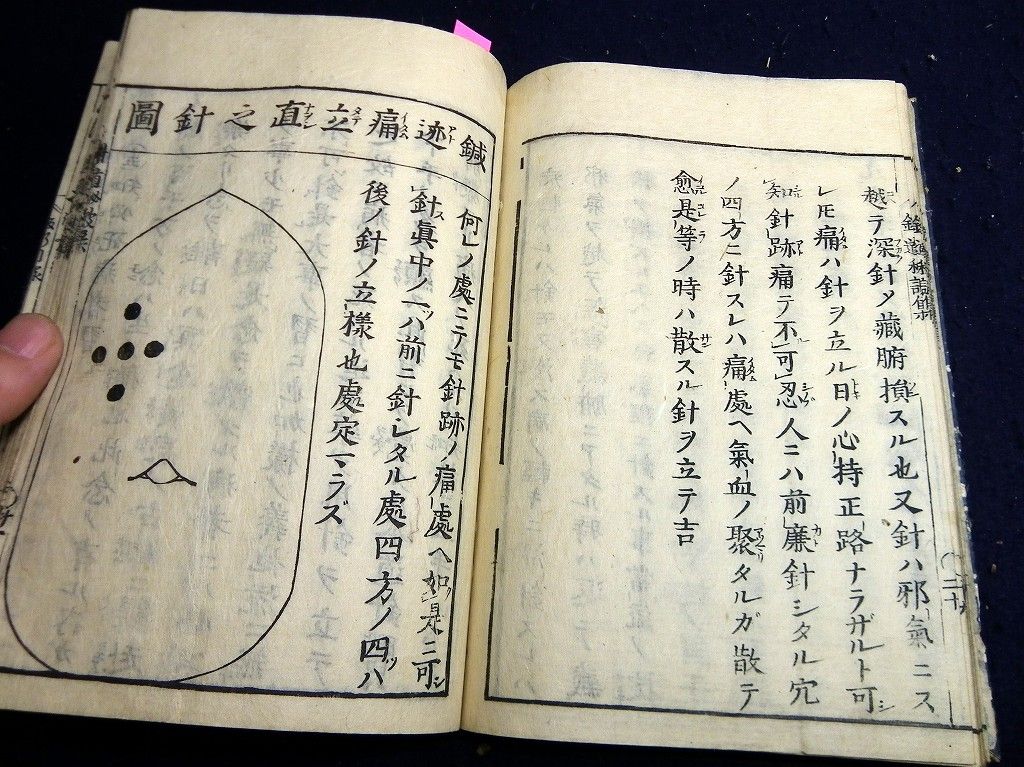 越テ深針メ藏腑損スル也又針ハ邪氣ニス
レ𪜈痛ハ針ヲ立ル日ノ心持正路ナラザルト可
知針跡痛テ不可忍人ニハ前廉針シタル穴
ノ四方ニ針スレハ痛處ヘ氣血ノ聚タルガ散テ
愈是等ノ時ハ散スル針ヲ立テ吉
鍼迹痛立直之針圖
何レノ處ニテモ針跡ノ痛處ヘ如是ニ可
針眞中ノ一ハ前ニ針シタル處四方ノ四ツハ
後ノ針ノ立樣也處定マラズ